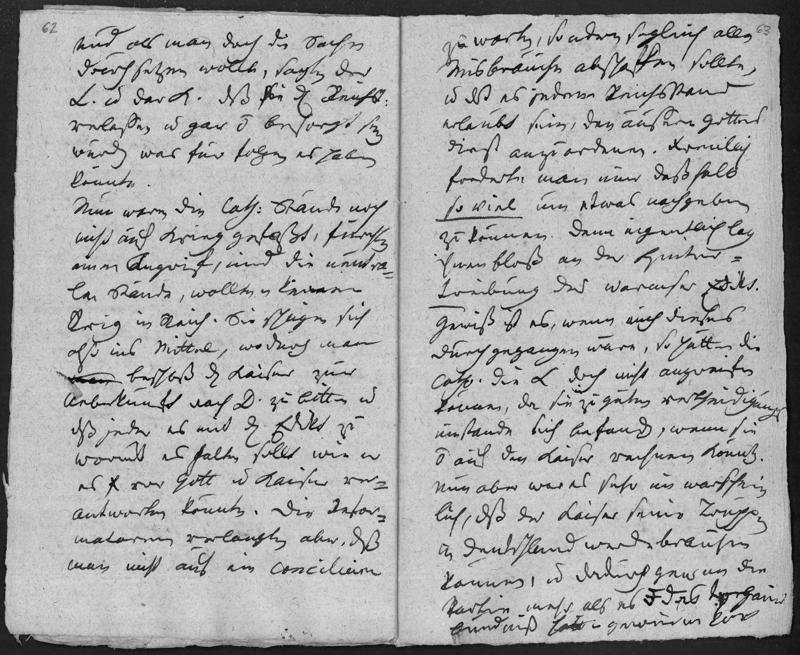 62
und als man doch die Sache
durchsetzen wollte, sagte der
L. u der K. dß sie d Reichst:
verlassen u gar besorgt sey
würde was für folgen es haben
könnte.
Nun waren die Cath: Stände noch
nicht auf Krieg gefaßt, fürchte
einen Angrif, und die neutra=
len Stände, wollten keinen
Krig in Reich. Sie schlugen sich
also ins Mittel, wodurch man
beschloß d Kaiser zur
nach D. zu bitten u
dß jeder es mit d Edikt zu
worms es halten sollte wie er
es vor Gott u Kaiser ver=
antworten könnte. Die Refor=
matoren verlangten aber, dß
man nicht auf ein concilium
63
zu warten, sondern sogleich alle
Misbräuche abschaffen sollte,
u dß es jedem Reichsstand
erlaubt sein, den äußern Gottes
dienst anzuordnen. Freilich
forderte man nur deßhalb
so viel um etwas nachgeben
zu können. Denn eigentlich lag
ihnen bloß an der Hinter=
treibung des wormser Edikts.
Gewiß ist es, wenn auch dieses
durchgegangen wäre, so hätten die
Cath. die L doch nicht angreifen
können, da sie zu guten vertheidigungs
umstande sich befande, wenn sie
auf den Kaiser rechnen könnte.
Nun aber war es sehr unwarschein
lich, dß der Kaiser seine Truppe
in Deutschland werde brauchen
können, u dadurch gewann die
Parthie mehr als es das
bündniß gewonnen